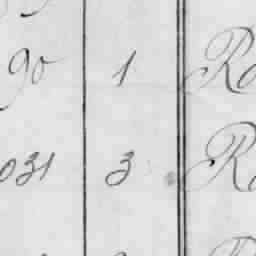 90 1 Ro
031 3 R